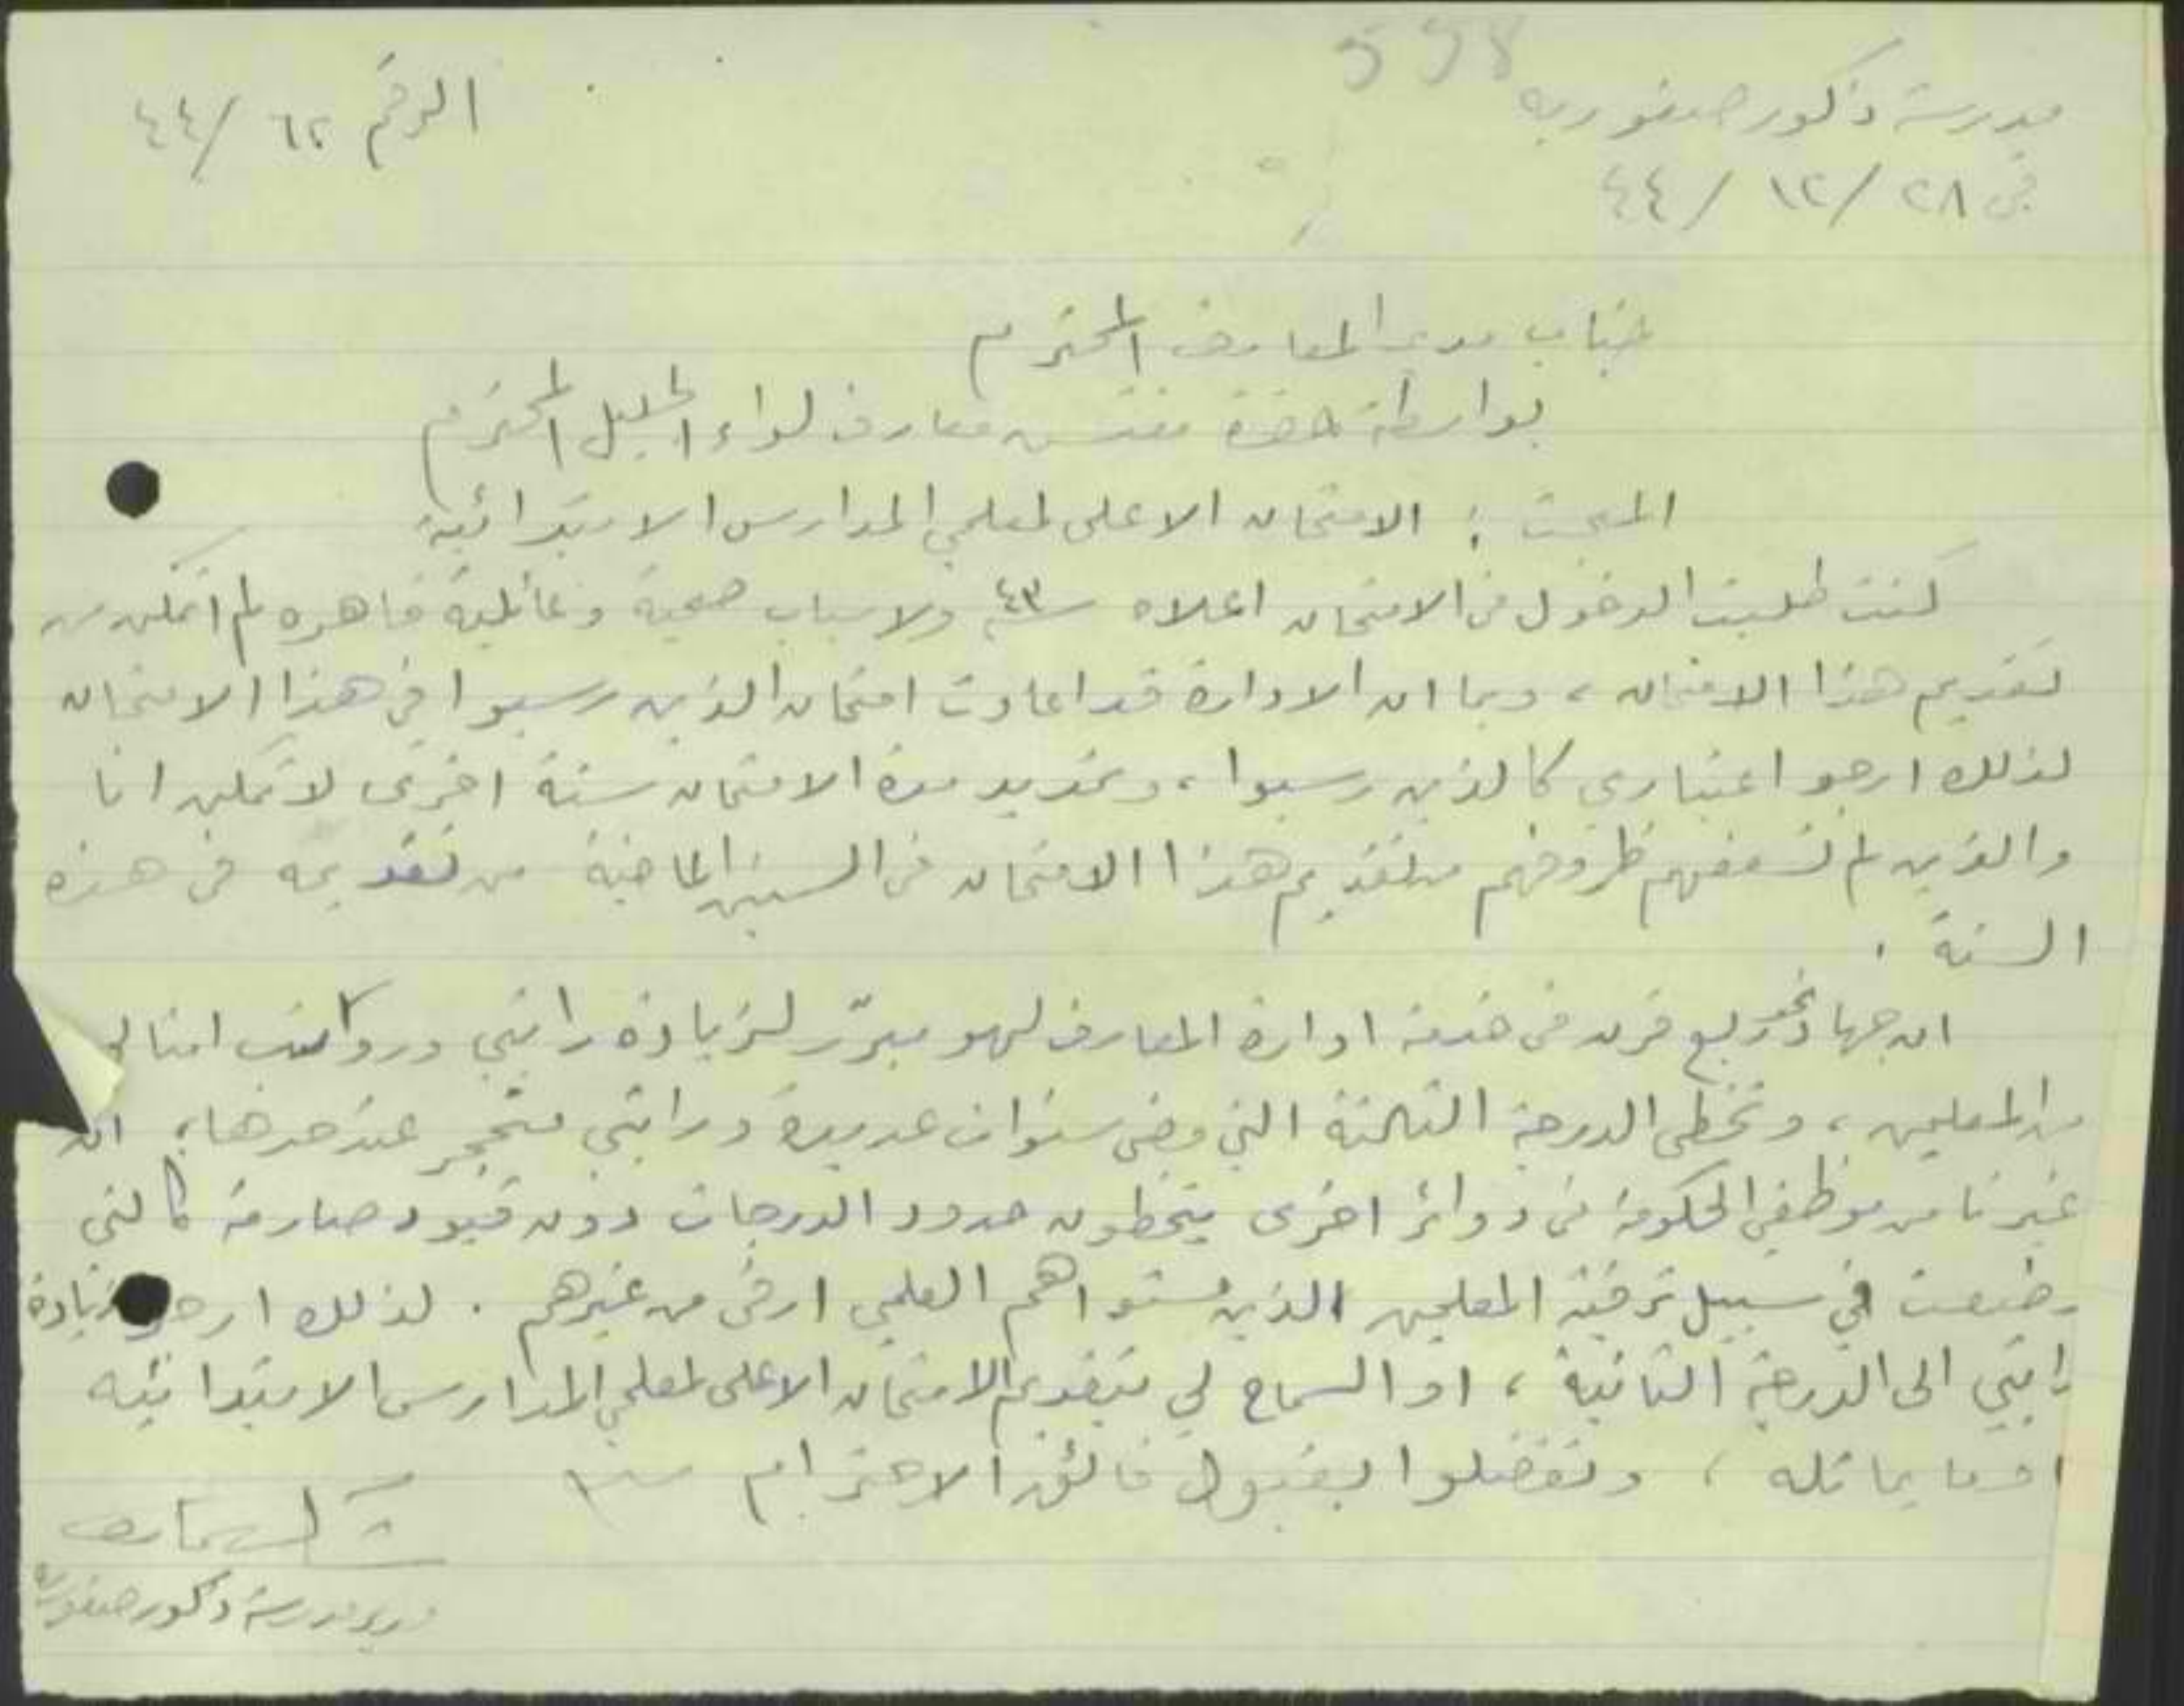 558
مدرسة ذكور صفوريه
الرقم ٦٢ /٤٤
في ٢٨ /١٢ /٤٤
جناب مدير المعارف المحترم
بواسطة حضرة مفتش معارف لواء الجليل المحترم
المبحث : الامتحان الاعلى لمعلمي المدارس الابتدائية
كنت طلبت الدخول في الامتحان اعلاه سنة ٤٣ ولاسباب صحية وعائلية قاهره لم اتمكن من
تقديم هذا الامتحان ، وبما ان الادارة قد اعادت امتحان الذين رسبوا في هذا الامتحان
لذلك ارجو اعتباري كالذين رسبوا ، وتمديد مدة الامتحان سنة اخرى لاتمكن انا
والذين لم تسعفهم ظروفهم من تقديم هذا الامتحان في السنين الماضية من تقديمه في هذه
السنة .
ان جهاد نحو ربع قرن في خدمة ادارة المعارف لهو مبرّر لزيادة راتبي ورواتب امثالي
من المعلمين ، وتخطي الدرجة الثالثة التي مضى سنوات عديدة وراتبي متحجر عند حدها ، ان
غيرنا من موظفي الحكومة في دوائر اخرى يتخطون حدود الدرجات دون قيود صارمة كالتي
وضعت في سبيل ترقية المعلمين الذين مستواهم العلمي ارقى من غيرهم . لذلك ارجو زيادة
راتبي الى الدرجة الثانية ، او السماح لي بتقديم الامتحان الاعلى لمعلمي المدارس الابتدائيه
او ما يماثله ، وتفضلوا بقبول فائق الاحترام
مدير مدرسة ذكور صفوريه